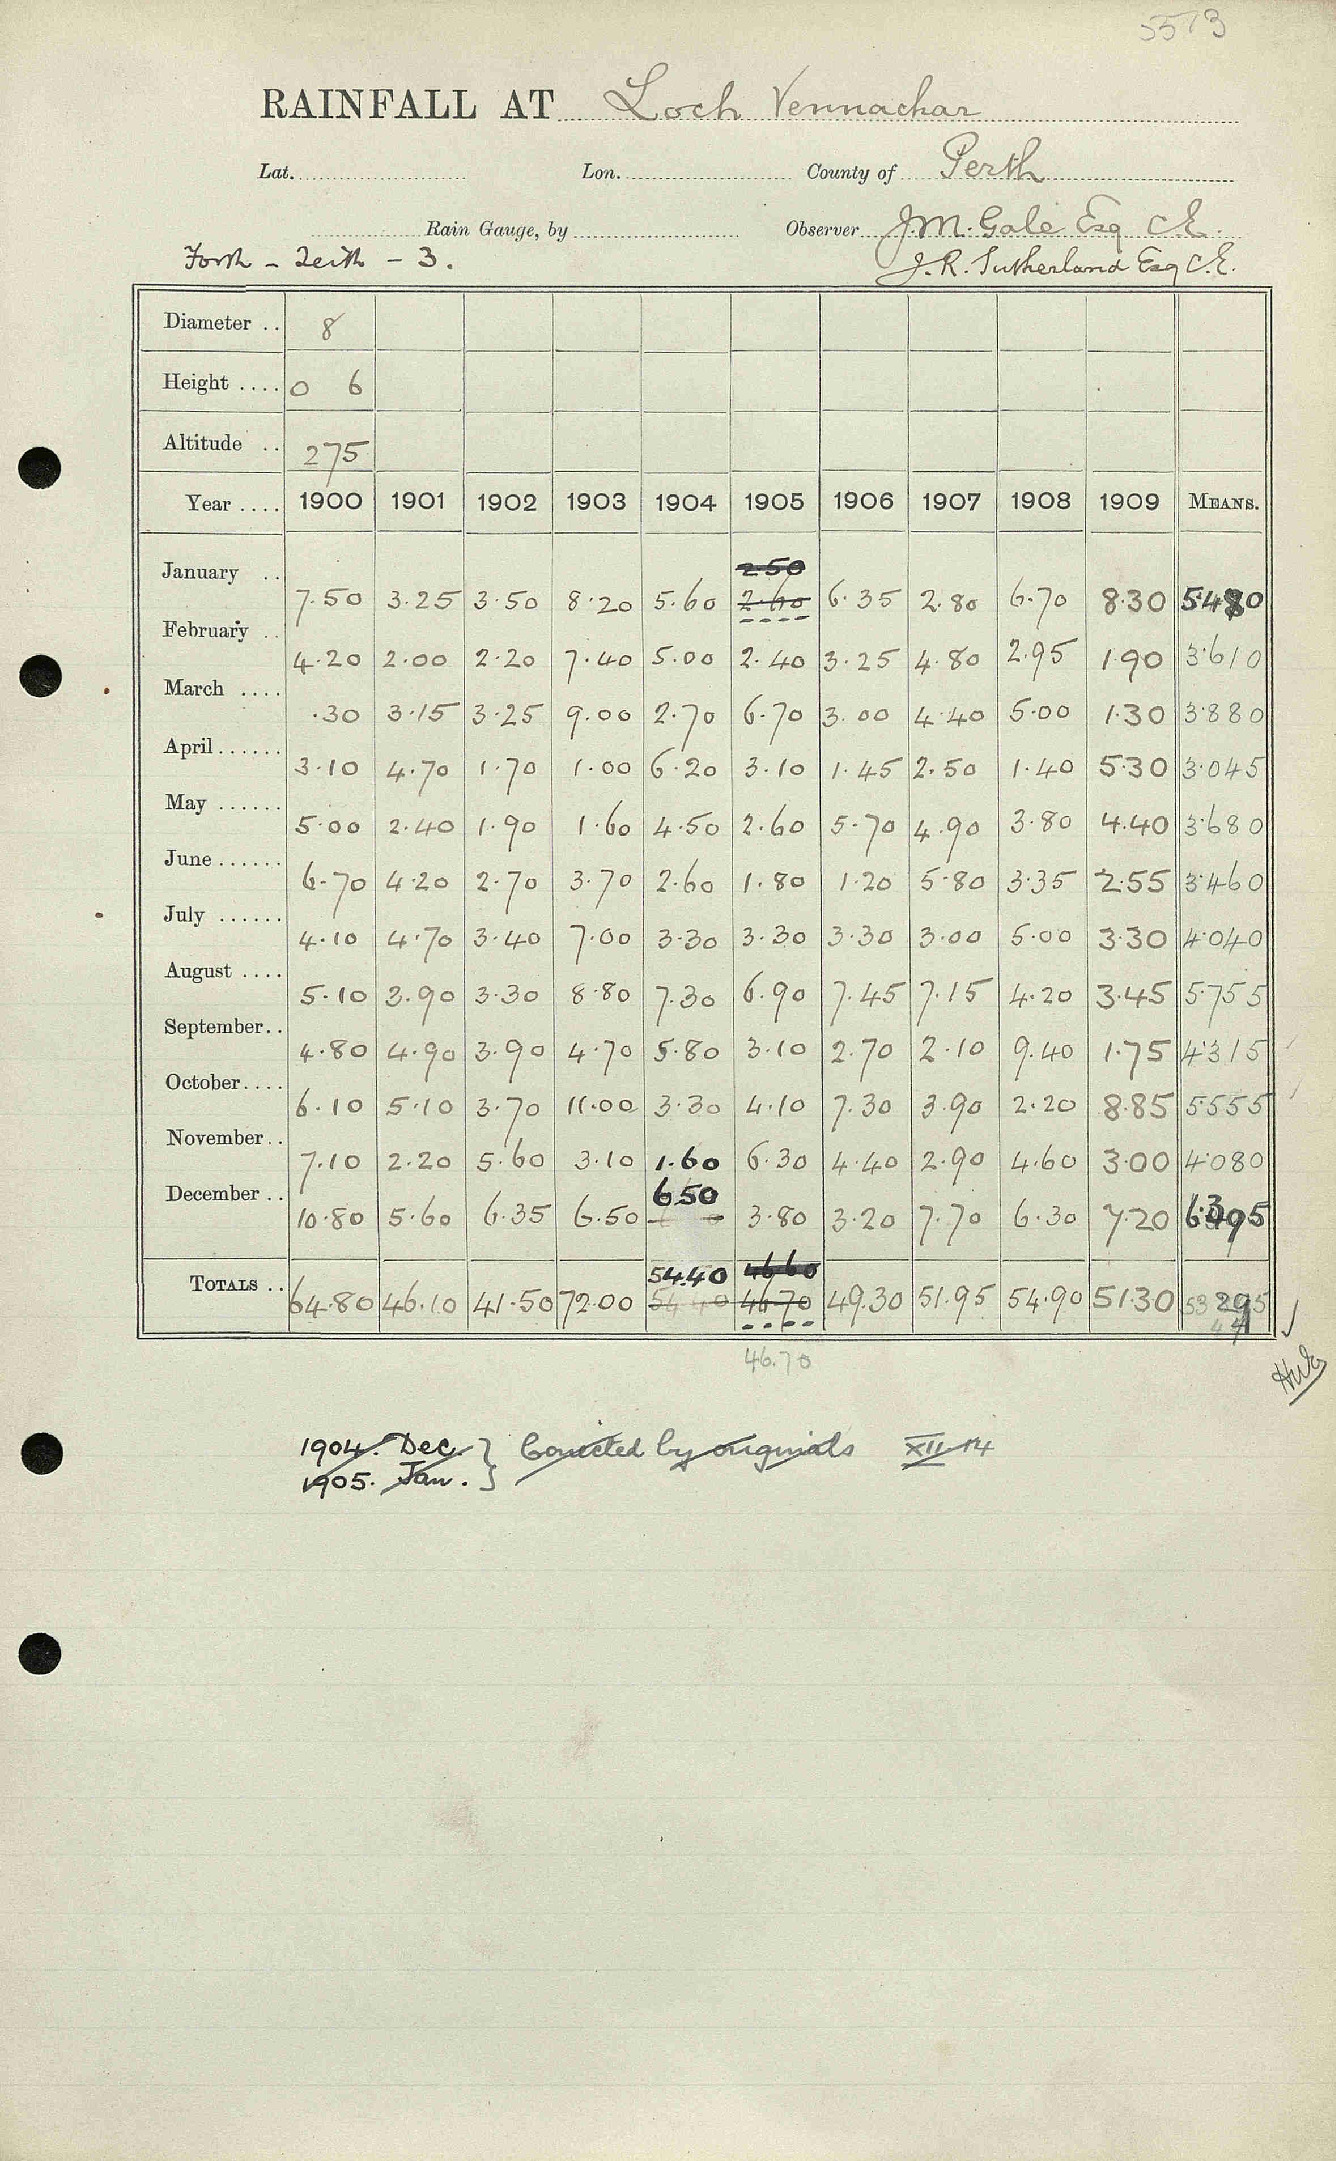 5513
RAINFALL AT Loch Vennachar
Lat. Lon. County of Perth
Rain Gauge, by Observer J.M. Gale Esq C.E.
Forth - Teith - 3. J.R. Sutherland Esq C.E.
Diameter .. 8
Height .... 0 6
Altitude .. 275
Year .... 1900 1901 1902 1903 1904 1905 1906 1907 1908 1909 MEANS.
2.50
January .. 7.50 3.25 3.50 8.20 5.60 2.60 6.35 2.80 6.70 8.30 5.480
February .. 4.20 2.00 2.20 7.40 5.00 2.40 3.25 4.80 2.95 1.90 3.610
March .... .30 3.15 3.25 9.00 2.70 6.70 3.00 4.40 5.00 1.30 3.880
April ...... 3.10 4.70 1.70 1.00 6.20 3.10 1.45 2.50 1.40 5.30 3.045
May ...... 5.00 2.40 1.90 1.60 4.50 2.60 5.70 4.90 3.80 4.40 3.680
June ...... 6.70 4.20 2.70 3.70 2.60 1.80 1.20 5.80 3.35 2.55 3.460
July ...... 4.10 4.70 3.40 7.00 3.30 3.30 3.30 3.00 5.00 3.30 4.040
August .... 5.10 3.90 3.30 8.80 7.30 6.90 7.45 7.15 4.20 3.45 5.755
September.. 4.80 4.90 3.90 4.70 5.80 3.10 2.70 2.10 9.40 1.75 4.315
October.... 6.10 5.10 3.70 11.00 3.30 4.10 7.30 3.90 2.20 8.85 5.555
November.. 7.10 2.20 5.60 3.10 1.60 6.30 4.40 2.90 4.60 3.00 4.080
December .. 10.80 5.60 6.35 6.50 6.50 3.80 3.20 7.70 6.30 7.20 6.395
54.40 46.60
TOTALS .. 64.80 46.10 41.50 72.00 54.40 46.70 49.30 51.95 54.90 51.30 53.295
46.70
1904. Dec. } Corrected by originals XII 14
1905. Jan. }